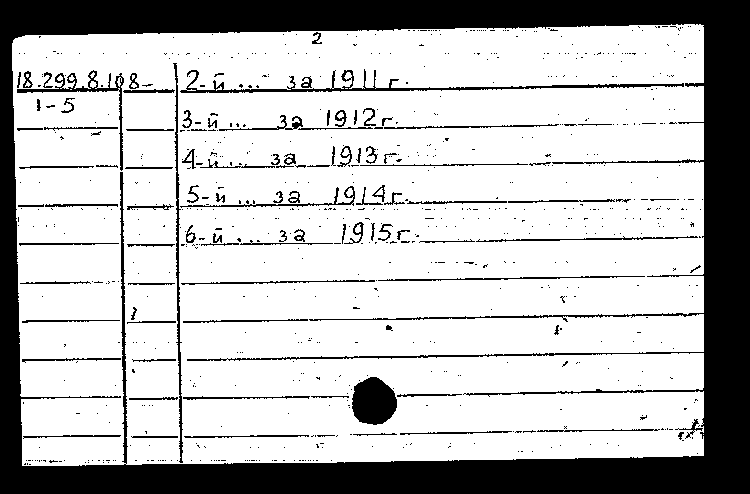 2
18.299.8.108- 2-й ... за 1911 г.
1-5
3-й ... за 1912 г.
4-й ... за 1913 г.
5-й ... за 1914 г.
6-й ... за 1915 г.